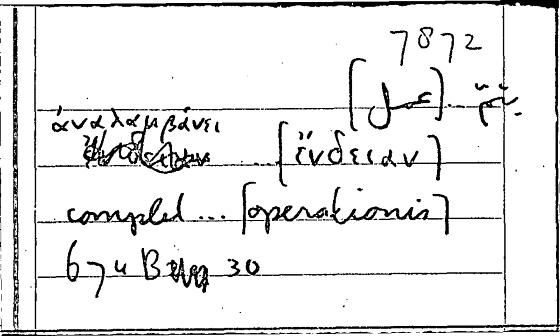 7872
ἀναλαμβάνει
... [ἔνδειαν]
complet... [operationis]
674 B 30